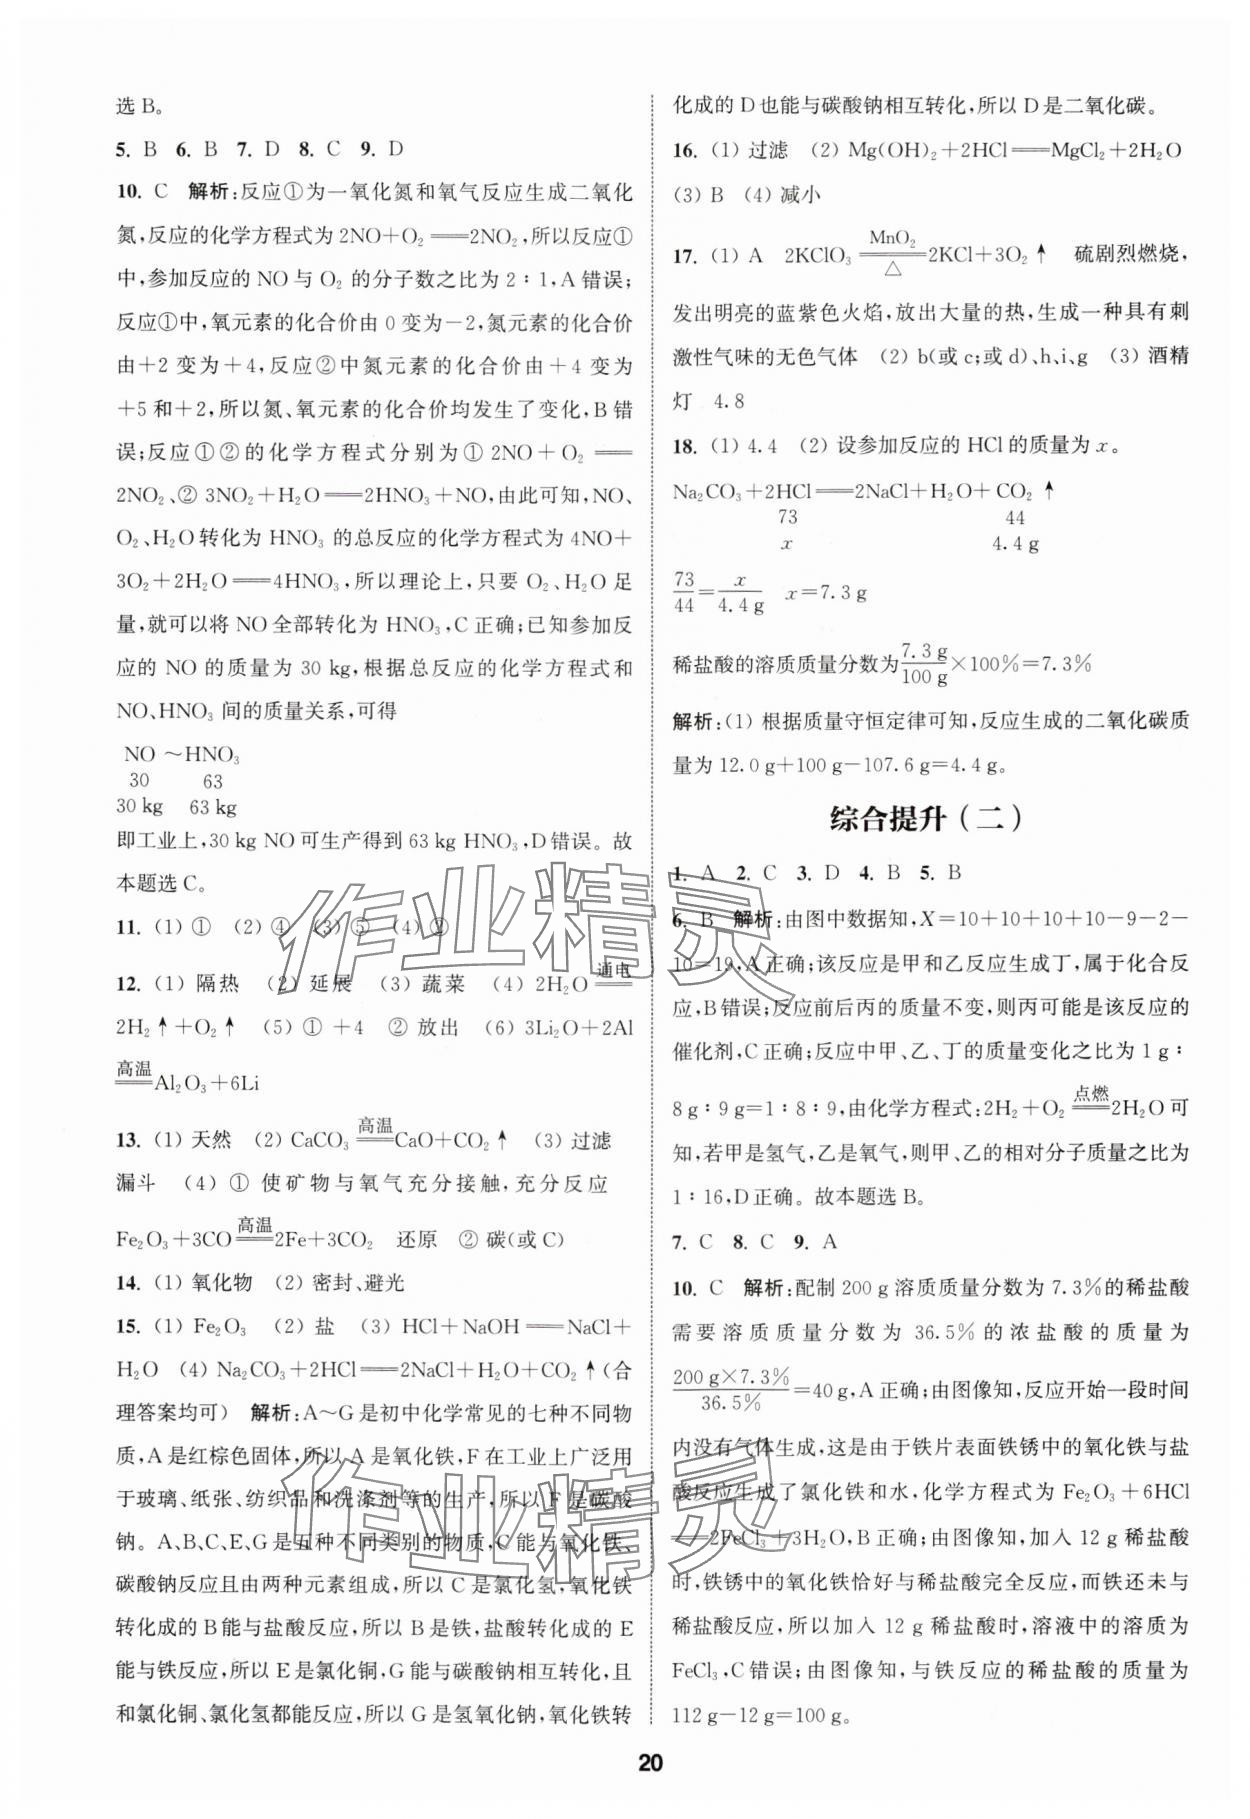 选 B。
5. B  6. B  7. D  8. C  9. D
10. C  解析:反应①为一氧化氮和氧气反应生成二氧化
氮,反应的化学方程式为 2NO+O₂══2NO₂,所以反应①
中,参加反应的 NO 与 O₂ 的分子数之比为 2∶1,A 错误;
反应①中,氧元素的化合价由 0 变为−2,氮元素的化合价
由+2 变为+4,反应②中氮元素的化合价由+4 变为
+5 和+2,所以氮、氧元素的化合价均发生了变化,B 错
误;反应①②的化学方程式分别为① 2NO+O₂══
2NO₂、② 3NO₂+H₂O══2HNO₃+NO,由此可知,NO、
O₂、H₂O 转化为 HNO₃ 的总反应的化学方程式为 4NO+
3O₂+2H₂O══4HNO₃,所以理论上,只要 O₂、H₂O 足
量,就可以将 NO 全部转化为 HNO₃,C 正确;已知参加反
应的 NO 的质量为 30 kg,根据总反应的化学方程式和
NO、HNO₃ 间的质量关系,可得
NO ～HNO₃
30  63
30 kg  63 kg
即工业上,30 kg NO 可生产得到 63 kg HNO₃,D 错误。故
本题选 C。
11. (1) ①  (2) ④  (3) ⑤  (4) ②
12. (1) 隔热  (2) 延展  (3) 蔬菜  (4) 2H₂O 通电══
2H₂↑+O₂↑  (5) ① +4  ② 放出  (6) 3Li₂O+2Al
高温══ Al₂O₃+6Li
13. (1) 天然  (2) CaCO₃ 高温══ CaO+CO₂↑  (3) 过滤
漏斗  (4) ① 使矿物与氧气充分接触,充分反应
Fe₂O₃+3CO 高温══ 2Fe+3CO₂  还原  ② 碳(或 C)
14. (1) 氧化物  (2) 密封、避光
15. (1) Fe₂O₃  (2) 盐  (3) HCl+NaOH══NaCl+
H₂O  (4) Na₂CO₃+2HCl══2NaCl+H₂O+CO₂↑(合
理答案均可)  解析:A～G 是初中化学常见的七种不同物
质,A 是红棕色固体,所以 A 是氧化铁,F 在工业上广泛用
于玻璃、纸张、纺织品和洗涤剂等的生产,所以 F 是碳酸
钠。A、B、C、E、G 是五种不同类别的物质,C 能与氧化铁、
碳酸钠反应且由两种元素组成,所以 C 是氯化氢,氧化铁
转化成的 B 能与盐酸反应,所以 B 是铁,盐酸转化成的 E
能与铁反应,所以 E 是氯化铜,G 能与碳酸钠相互转化,且
和氯化铜、氯化氢都能反应,所以 G 是氢氧化钠,氧化铁转
化成的 D 也能与碳酸钠相互转化,所以 D 是二氧化碳。
16. (1) 过滤  (2) Mg(OH)₂+2HCl══MgCl₂+2H₂O
(3) B  (4) 减小
17. (1) A  2KClO₃ MnO₂══△ 2KCl+3O₂↑  硫剧烈燃烧,
发出明亮的蓝紫色火焰,放出大量的热,生成一种具有刺
激性气味的无色气体  (2) b(或 c;或 d)、h、i、g  (3) 酒精
灯  4.8
18. (1) 4.4  (2) 设参加反应的 HCl 的质量为 x。
Na₂CO₃+2HCl══2NaCl+H₂O+CO₂↑
73  44
x  4.4 g
73/44=x/4.4 g  x=7.3 g
稀盐酸的溶质质量分数为 7.3 g/100 g×100%=7.3%
解析:(1) 根据质量守恒定律可知,反应生成的二氧化碳质
量为 12.0 g+100 g−107.6 g=4.4 g。
综合提升(二)
1. A  2. C  3. D  4. B  5. B
6. B  解析:由图中数据知,X=10+10+10+10−9−2−
10=19,A 正确;该反应是甲和乙反应生成丁,属于化合反
应,B 错误;反应前后丙的质量不变,则丙可能是该反应的
催化剂,C 正确;反应中甲、乙、丁的质量变化之比为 1 g∶
8 g∶9 g=1∶8∶9,由化学方程式:2H₂+O₂ 点燃══ 2H₂O 可
知,若甲是氢气,乙是氧气,则甲、乙的相对分子质量之比为
1∶16,D 正确。故本题选 B。
7. C  8. C  9. A
10. C  解析:配制 200 g 溶质质量分数为 7.3%的稀盐酸
需要溶质质量分数为 36.5%的浓盐酸的质量为
200 g×7.3%/36.5%=40 g,A 正确;由图像知,反应开始一段时间
内没有气体生成,这是由于铁片表面铁锈中的氧化铁与盐
酸反应生成了氯化铁和水,化学方程式为 Fe₂O₃+6HCl
══2FeCl₃+3H₂O,B 正确;由图像知,加入 12 g 稀盐酸
时,铁锈中的氧化铁恰好与稀盐酸完全反应,而铁还未与
稀盐酸反应,所以加入 12 g 稀盐酸时,溶液中的溶质为
FeCl₃,C 错误;由图像知,与铁反应的稀盐酸的质量为
112 g−12 g=100 g。
20
作业精灵
作业精灵